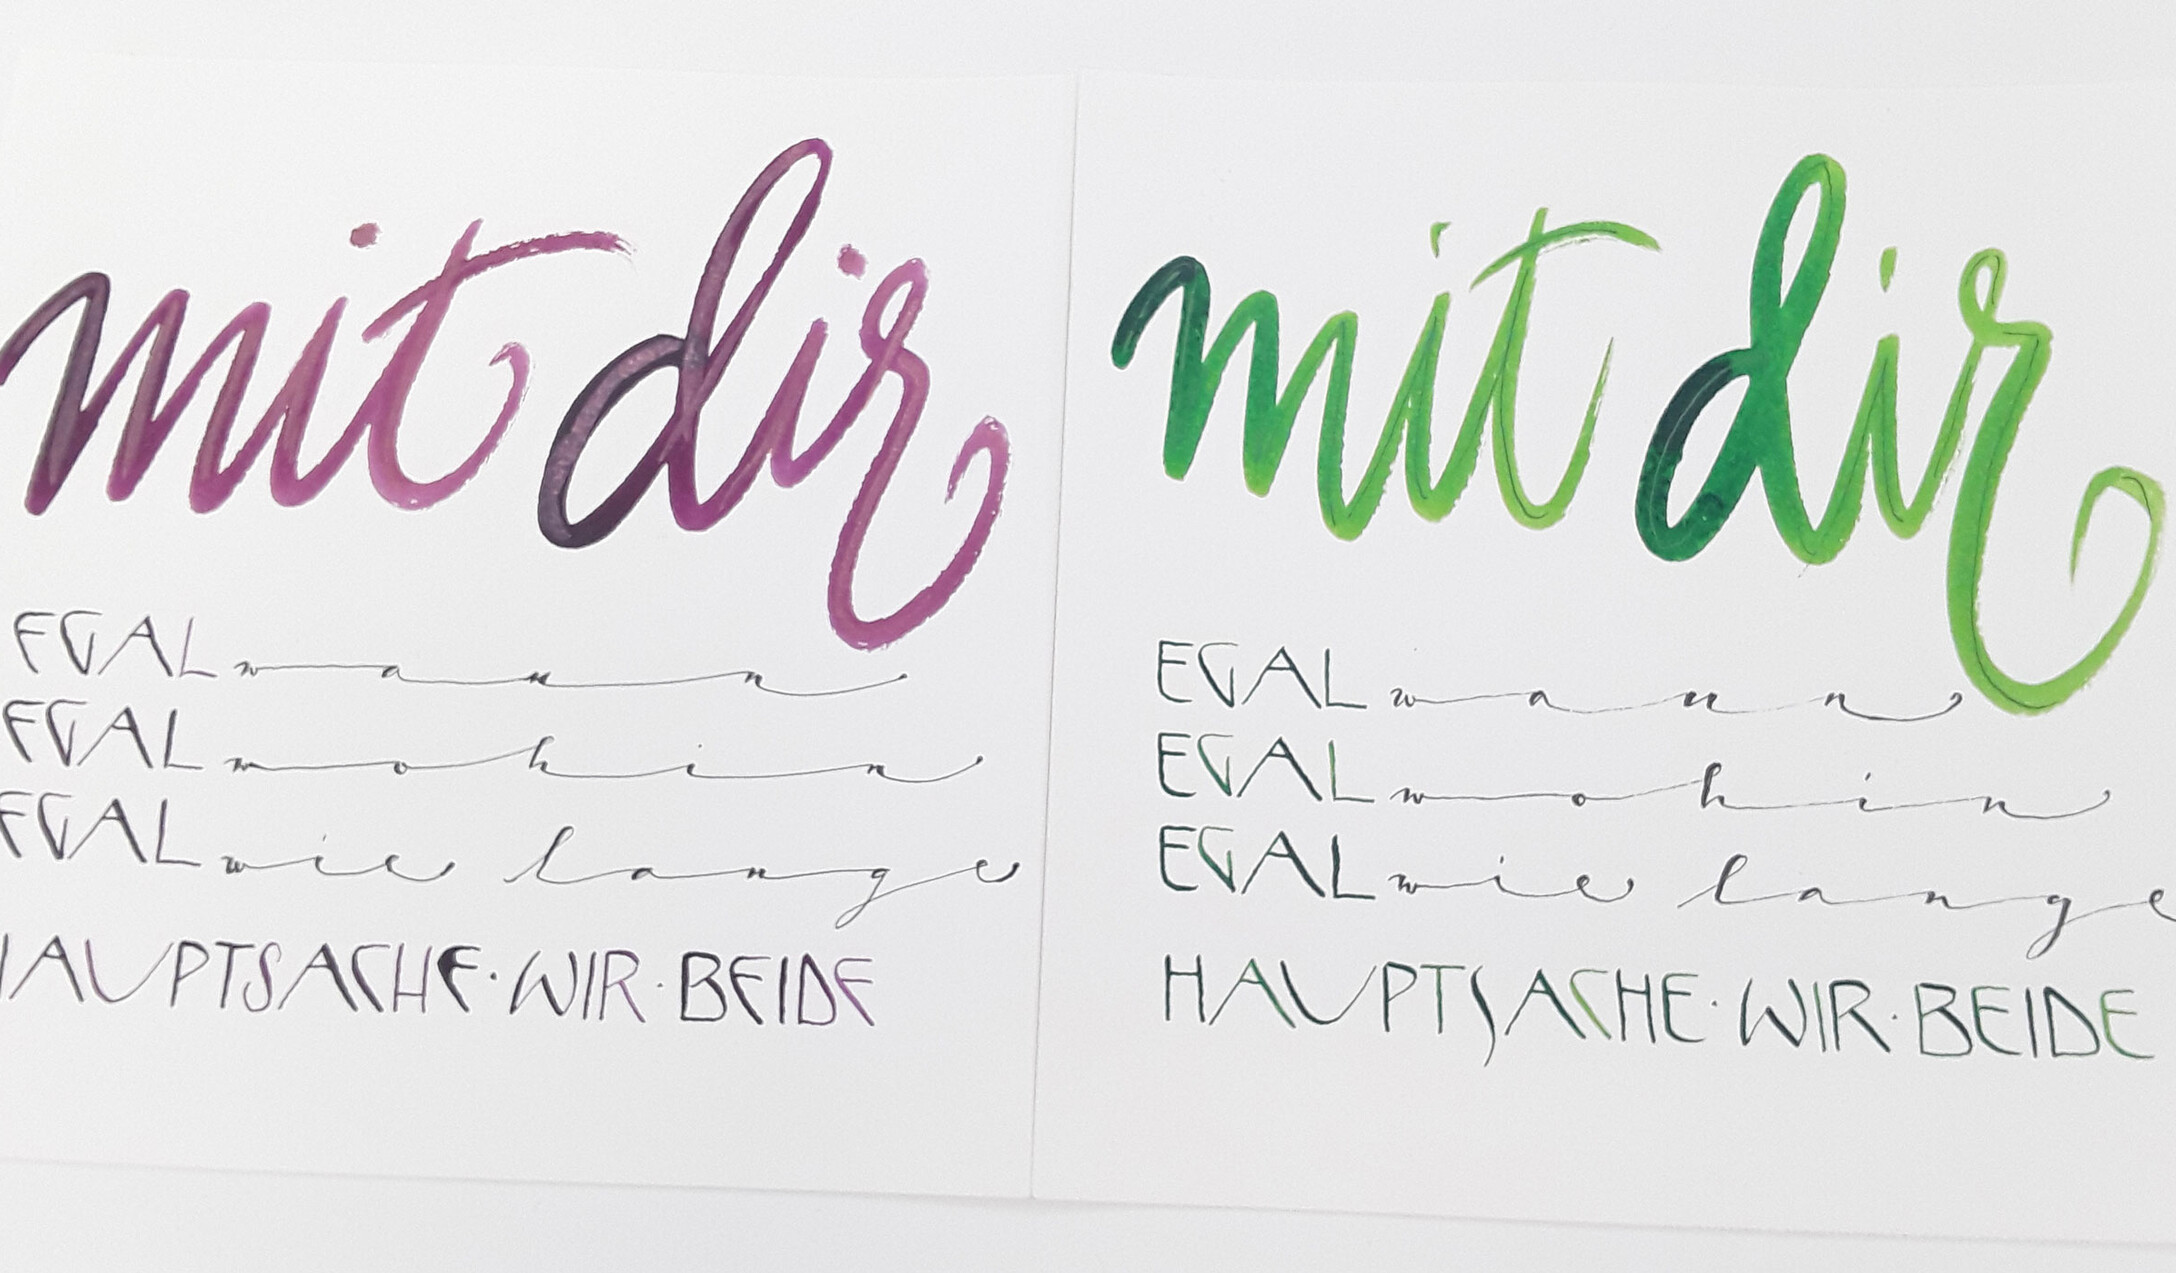 mit dir
EGAL wann
EGAL wohin
EGAL wie lange
HAUPTSACHE · WIR · BEIDE
mit dir
EGAL wann
EGAL wohin
EGAL wie lange
HAUPTSACHE · WIR · BEIDE